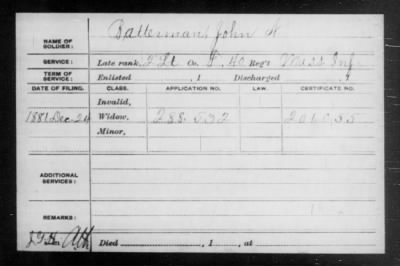 NAME OF SOLDIER: Batterman, John H
SERVICE: Late rank, 2 Lt Co. F, 40 Reg't Mass Inf.
TERM OF SERVICE: Enlisted , 1 Discharged , 1
DATE OF FILING. CLASS. APPLICATION NO. LAW. CERTIFICATE NO.
Invalid,
1881 Dec 24 Widow, 288.532 201.035
Minor,
ADDITIONAL SERVICES:
REMARKS:
Died , 1 , at